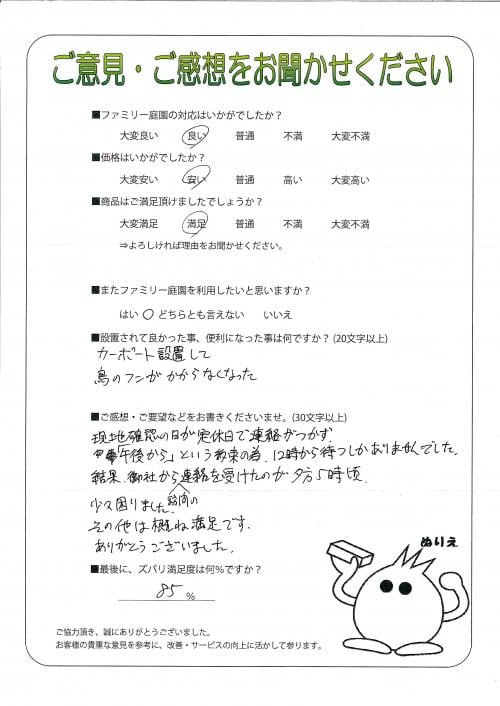 ご意見・ご感想をお聞かせください
■ファミリー庭園の対応はいかがでしたか？
大変良い 良い 普通 不満 大変不満
■価格はいかがでしたか？
大変安い 安い 普通 高い 大変高い
■商品はご満足頂けましたでしょうか？
大変満足 満足 普通 不満 大変不満
⇒よろしければ理由をお聞かせください。
■またファミリー庭園を利用したいと思いますか？
はい どちらとも言えない いいえ
■設置されて良かった事、便利になった事は何ですか？(20文字以上)
カーポート設置して
鳥のフンがかからなくなった
■ご感想・ご要望などをお書きくださいませ。(30文字以上)
現地確認の日が定休日で連絡がつかず
「午後から」という約束の為、12時から待つしかありませんでした。
結果、御社から連絡を受けたのが夕方5時頃
訪問の
少々困りました。
その他は概ね満足です。
ありがとうございました。
■最後に、ズバリ満足度は何％ですか？
85 %
ぬりえ
ご協力頂き、誠にありがとうございました。
お客様の貴重な意見を参考に、改善・サービスの向上に活かして参ります。